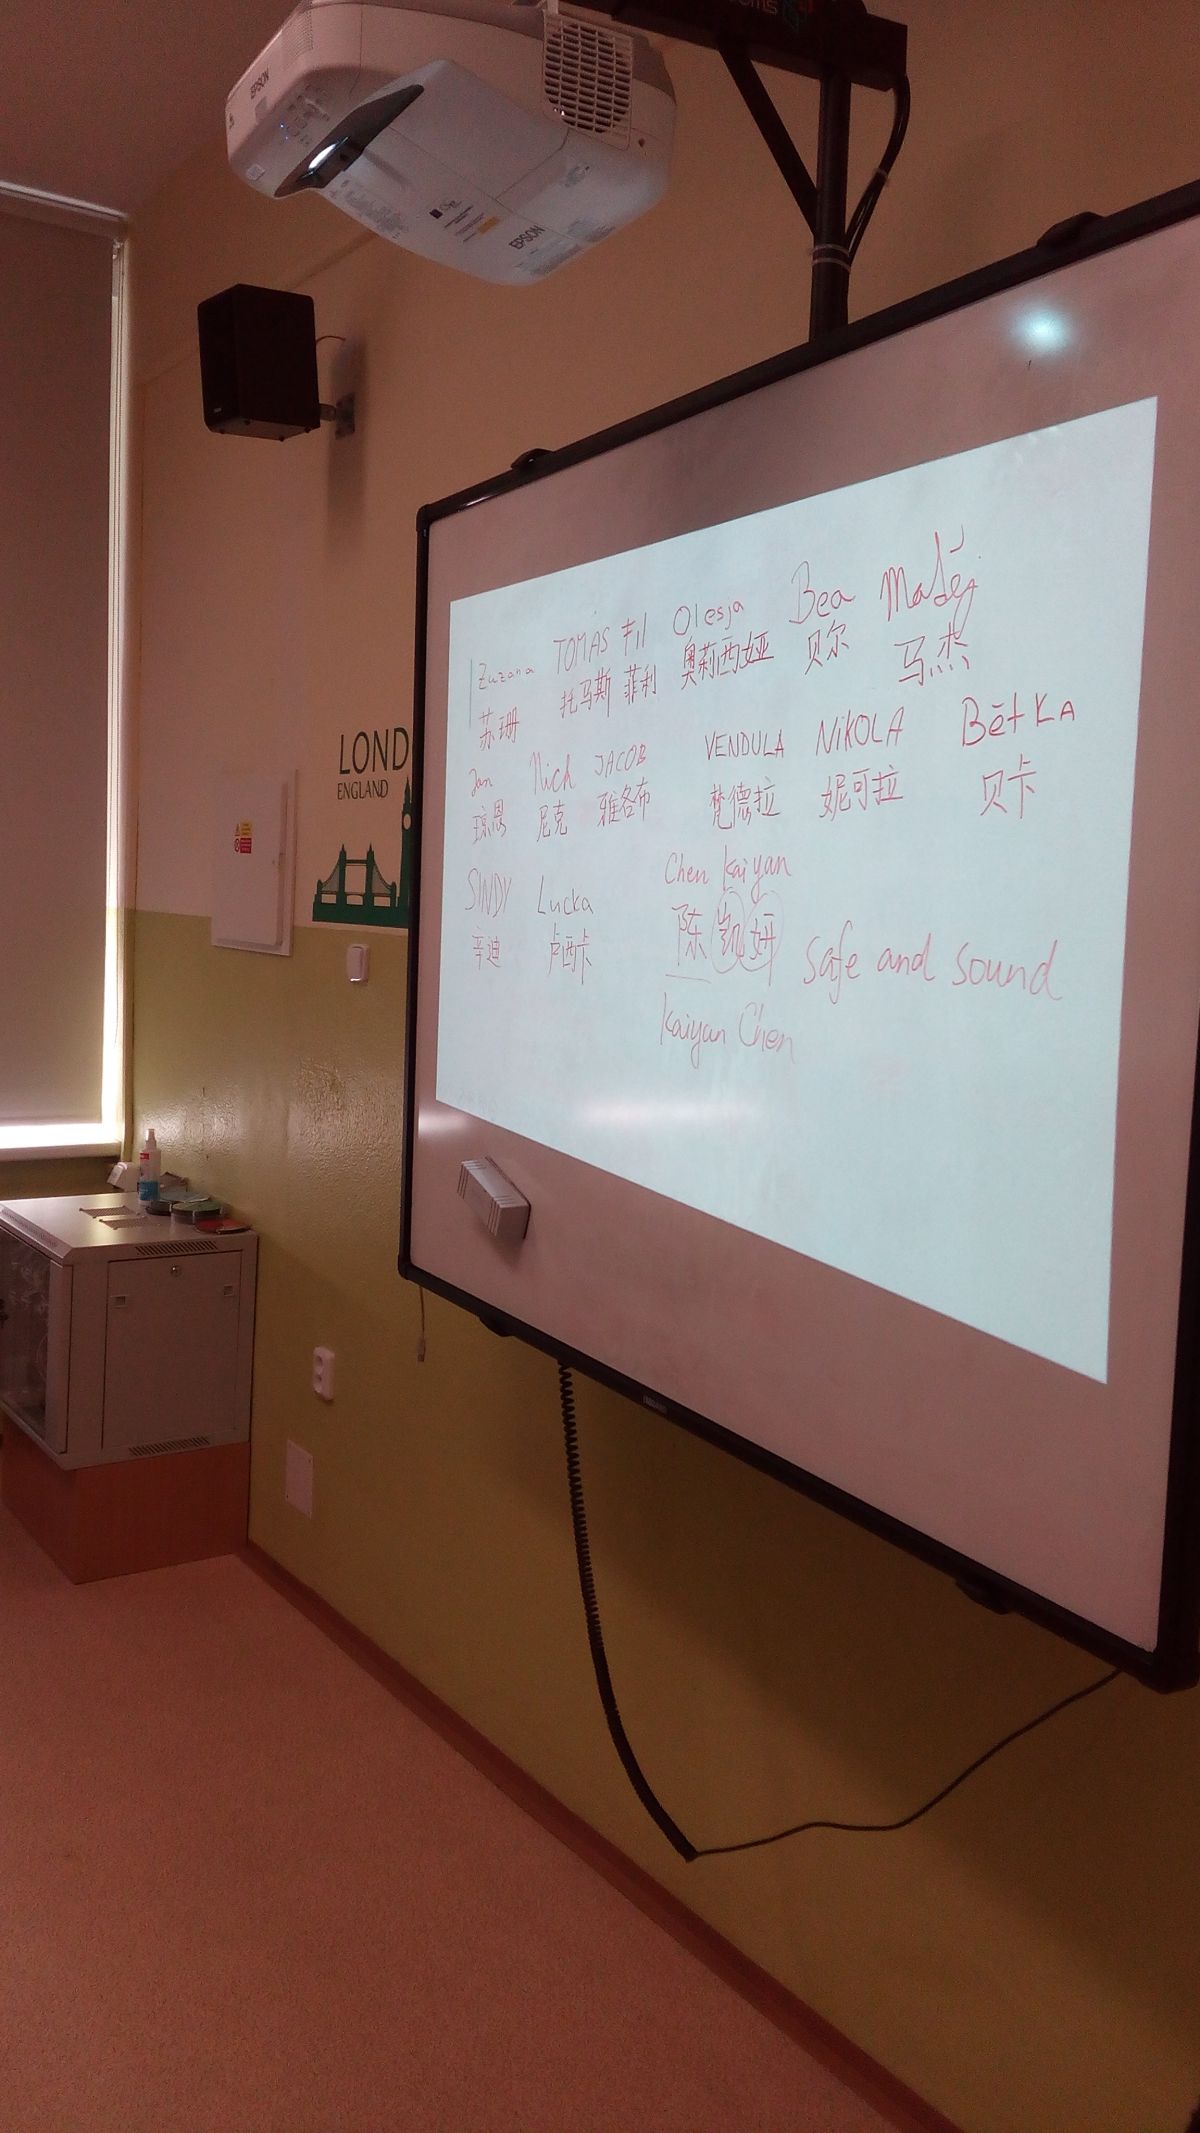 EPSON
EPSON
LOND
ENGLAND
Zuzana TOMÁS Fil Olesja Bea Matěj
苏珊 托马斯 菲利 奥莉西娅 贝尔 马杰
Jan Nich JACOB VENDULA NIKOLA BětKA
琼恩 尼克 雅各布 梵德拉 妮可拉 贝卡
SINDY Lucka Chen Kaiyan
辛迪 卢西卡 陈凯妍 safe and sound
Kaiyan Chen